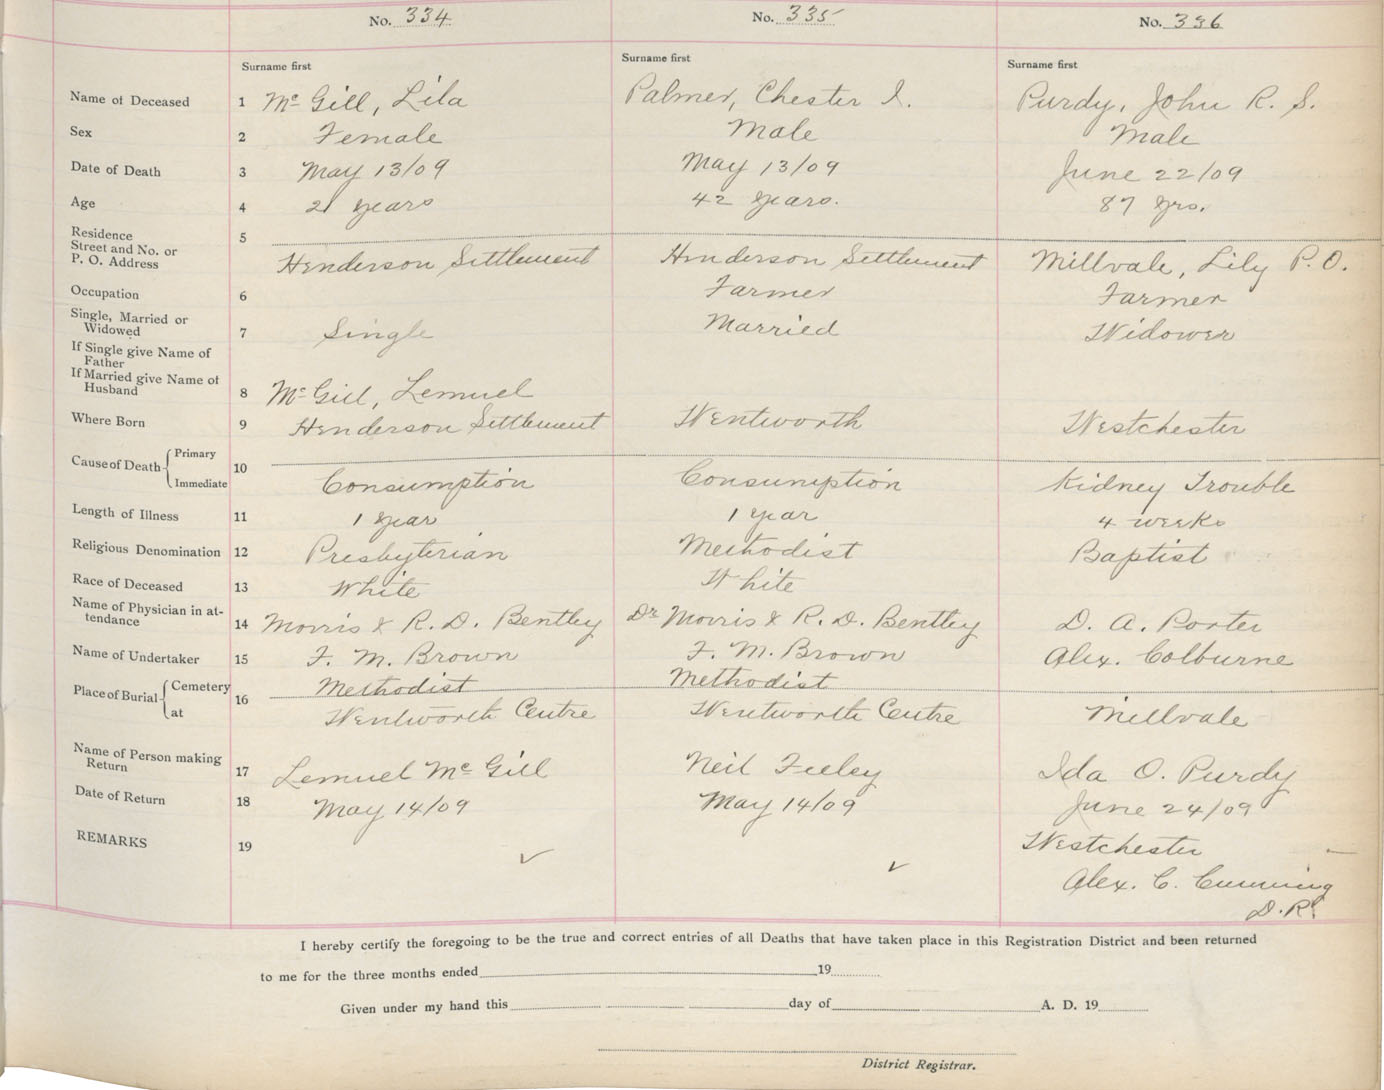 No. 334 No. 335 No. 336
Surname first Surname first Surname first
Name of Deceased 1 Mc Gill, Lila Palmer, Chester I. Purdy, John R. S.
Sex 2 Female Male Male
Date of Death 3 May 13/09 May 13/09 June 22/09
Age 4 21 years 42 years. 87 yrs.
Residence 5
Street and No. or
P. O. Address Henderson Settlement Henderson Settlement Millvale, Lily P.O.
Occupation 6 Farmer Farmer
Single, Married or
Widowed 7 Single Married Widower
If Single give Name of
Father
If Married give Name of
Husband 8 Mc Gill, Lemuel
Where Born 9 Henderson Settlement Wentworth Westchester
Cause of Death Primary
10
Immediate Consumption Consumption Kidney Trouble
Length of Illness 11 1 year 1 year 4 weeks
Religious Denomination 12 Presbyterian Methodist Baptist
Race of Deceased 13 White White
Name of Physician in at-
tendance 14 Morris & R. D. Bentley Dr Morris & R. D. Bentley D. A. Porter
Name of Undertaker 15 F. M. Brown F. M. Brown Alex. Colburne
Place of Burial Cemetery 16 Methodist Methodist
at Wentworth Centre Wentworth Centre Millvale
Name of Person making
Return 17 Lemuel Mc Gill Neil Feeley Ida O. Purdy
Date of Return 18 May 14/09 May 14/09 June 24/09
REMARKS 19 Westchester
✓ ✓ Alex. C. Cumming
D.R.
I hereby certify the foregoing to be the true and correct entries of all Deaths that have taken place in this Registration District and been returned
to me for the three months ended 19
Given under my hand this day of A. D. 19
District Registrar.